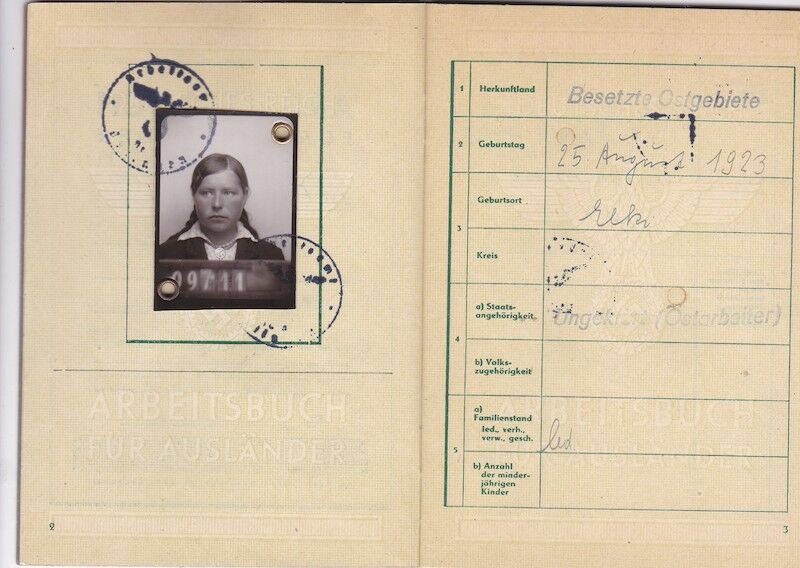 09711
ARBEITSBUCH
FÜR AUSLÄNDER
2
1 Herkunftland
Besetzte Ostgebiete
2 Geburtstag
25 August 1923
3 Geburtsort
Kreis
4 a) Staats-
angehörigkeit
Ungeklärt (Ostarbeiter)
b) Volks-
zugehörigkeit
5 a)
Familienstand
led., verh.,
verw., gesch.
led
b) Anzahl
der minder-
jährigen
Kinder
ARBEITSBUCH
FÜR AUSLÄNDER
3